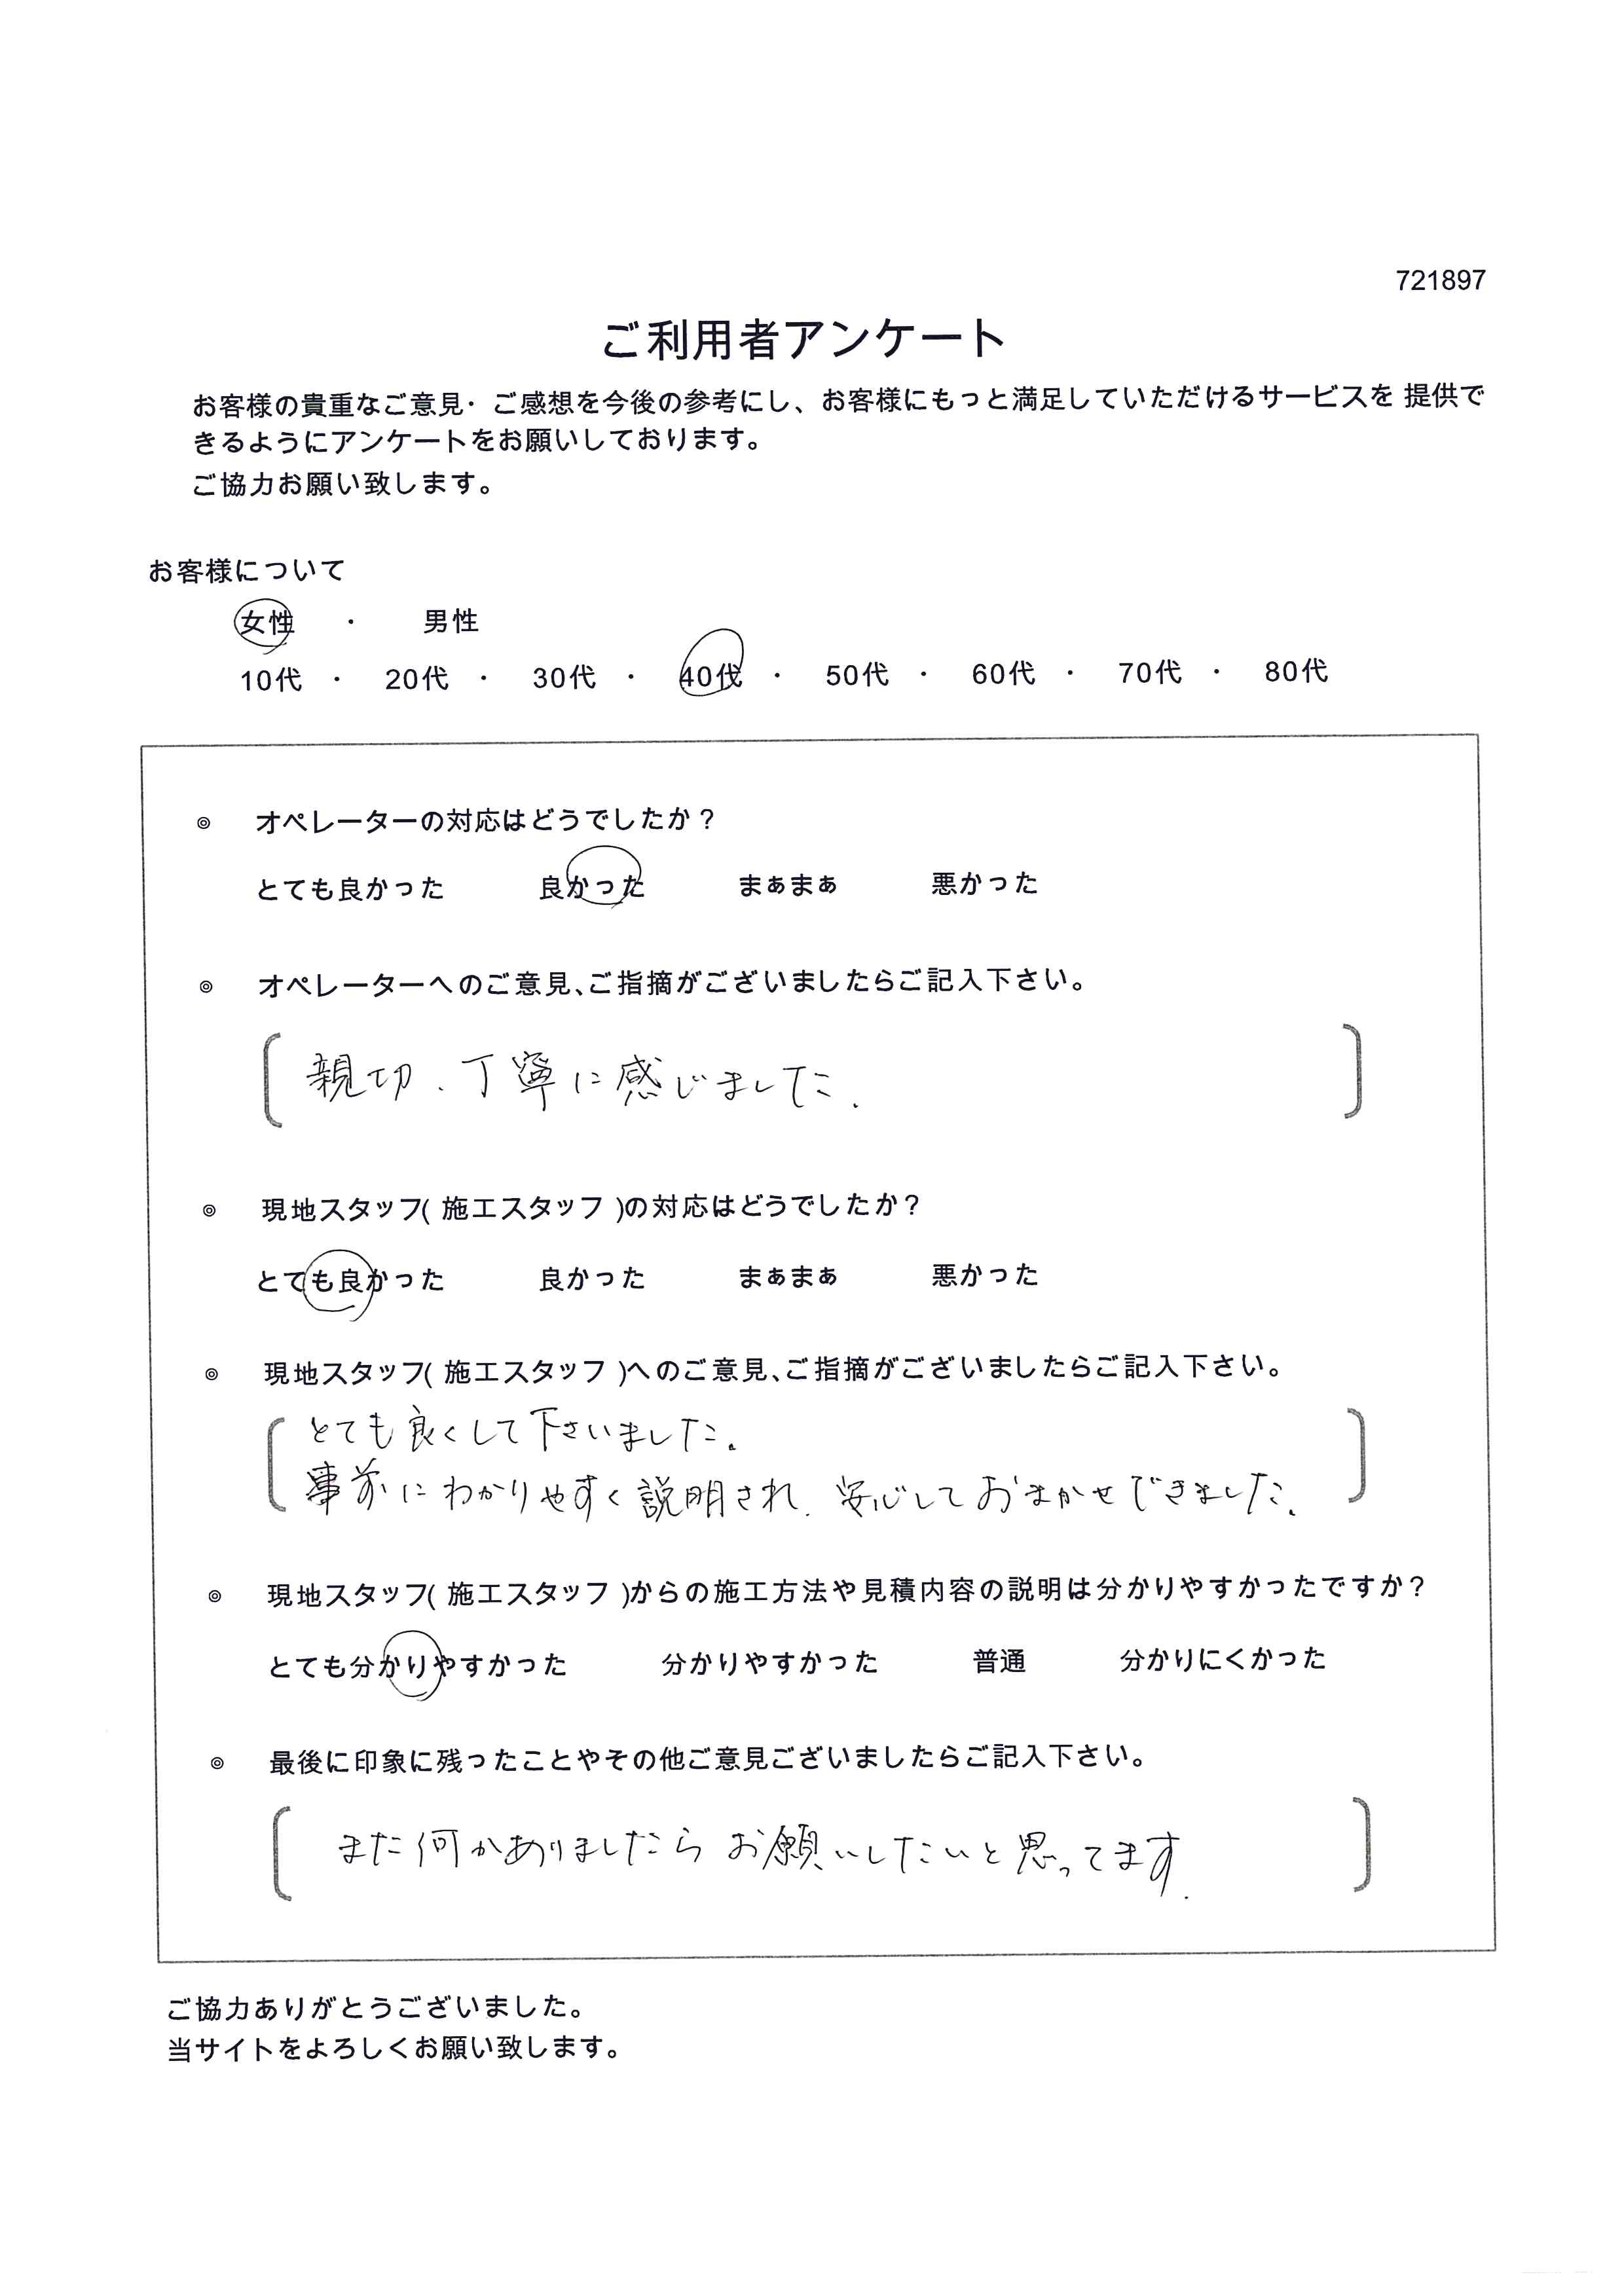 721897
ご利用者アンケート
お客様の貴重なご意見・ご感想を今後の参考にし、お客様にもっと満足していただけるサービスを 提供で
きるようにアンケートをお願いしております。
ご協力お願い致します。
お客様について
女性 ・ 男性
10代 ・ 20代 ・ 30代 ・ 40代 ・ 50代 ・ 60代 ・ 70代 ・ 80代
◎ オペレーターの対応はどうでしたか？
とても良かった 良かった まぁまぁ 悪かった
◎ オペレーターへのご意見、ご指摘がございましたらご記入下さい。
親切、丁寧に感じました。
◎ 現地スタッフ( 施工スタッフ )の対応はどうでしたか？
とても良かった 良かった まぁまぁ 悪かった
◎ 現地スタッフ( 施工スタッフ )へのご意見、ご指摘がございましたらご記入下さい。
とても良くして下さいました。
事前にわかりやすく説明され、安心しておまかせできました。
◎ 現地スタッフ( 施工スタッフ )からの施工方法や見積内容の説明は分かりやすかったですか？
とても分かりやすかった 分かりやすかった 普通 分かりにくかった
◎ 最後に印象に残ったことやその他ご意見ございましたらご記入下さい。
また何かありましたらお願いしたいと思ってます。
ご協力ありがとうございました。
当サイトをよろしくお願い致します。